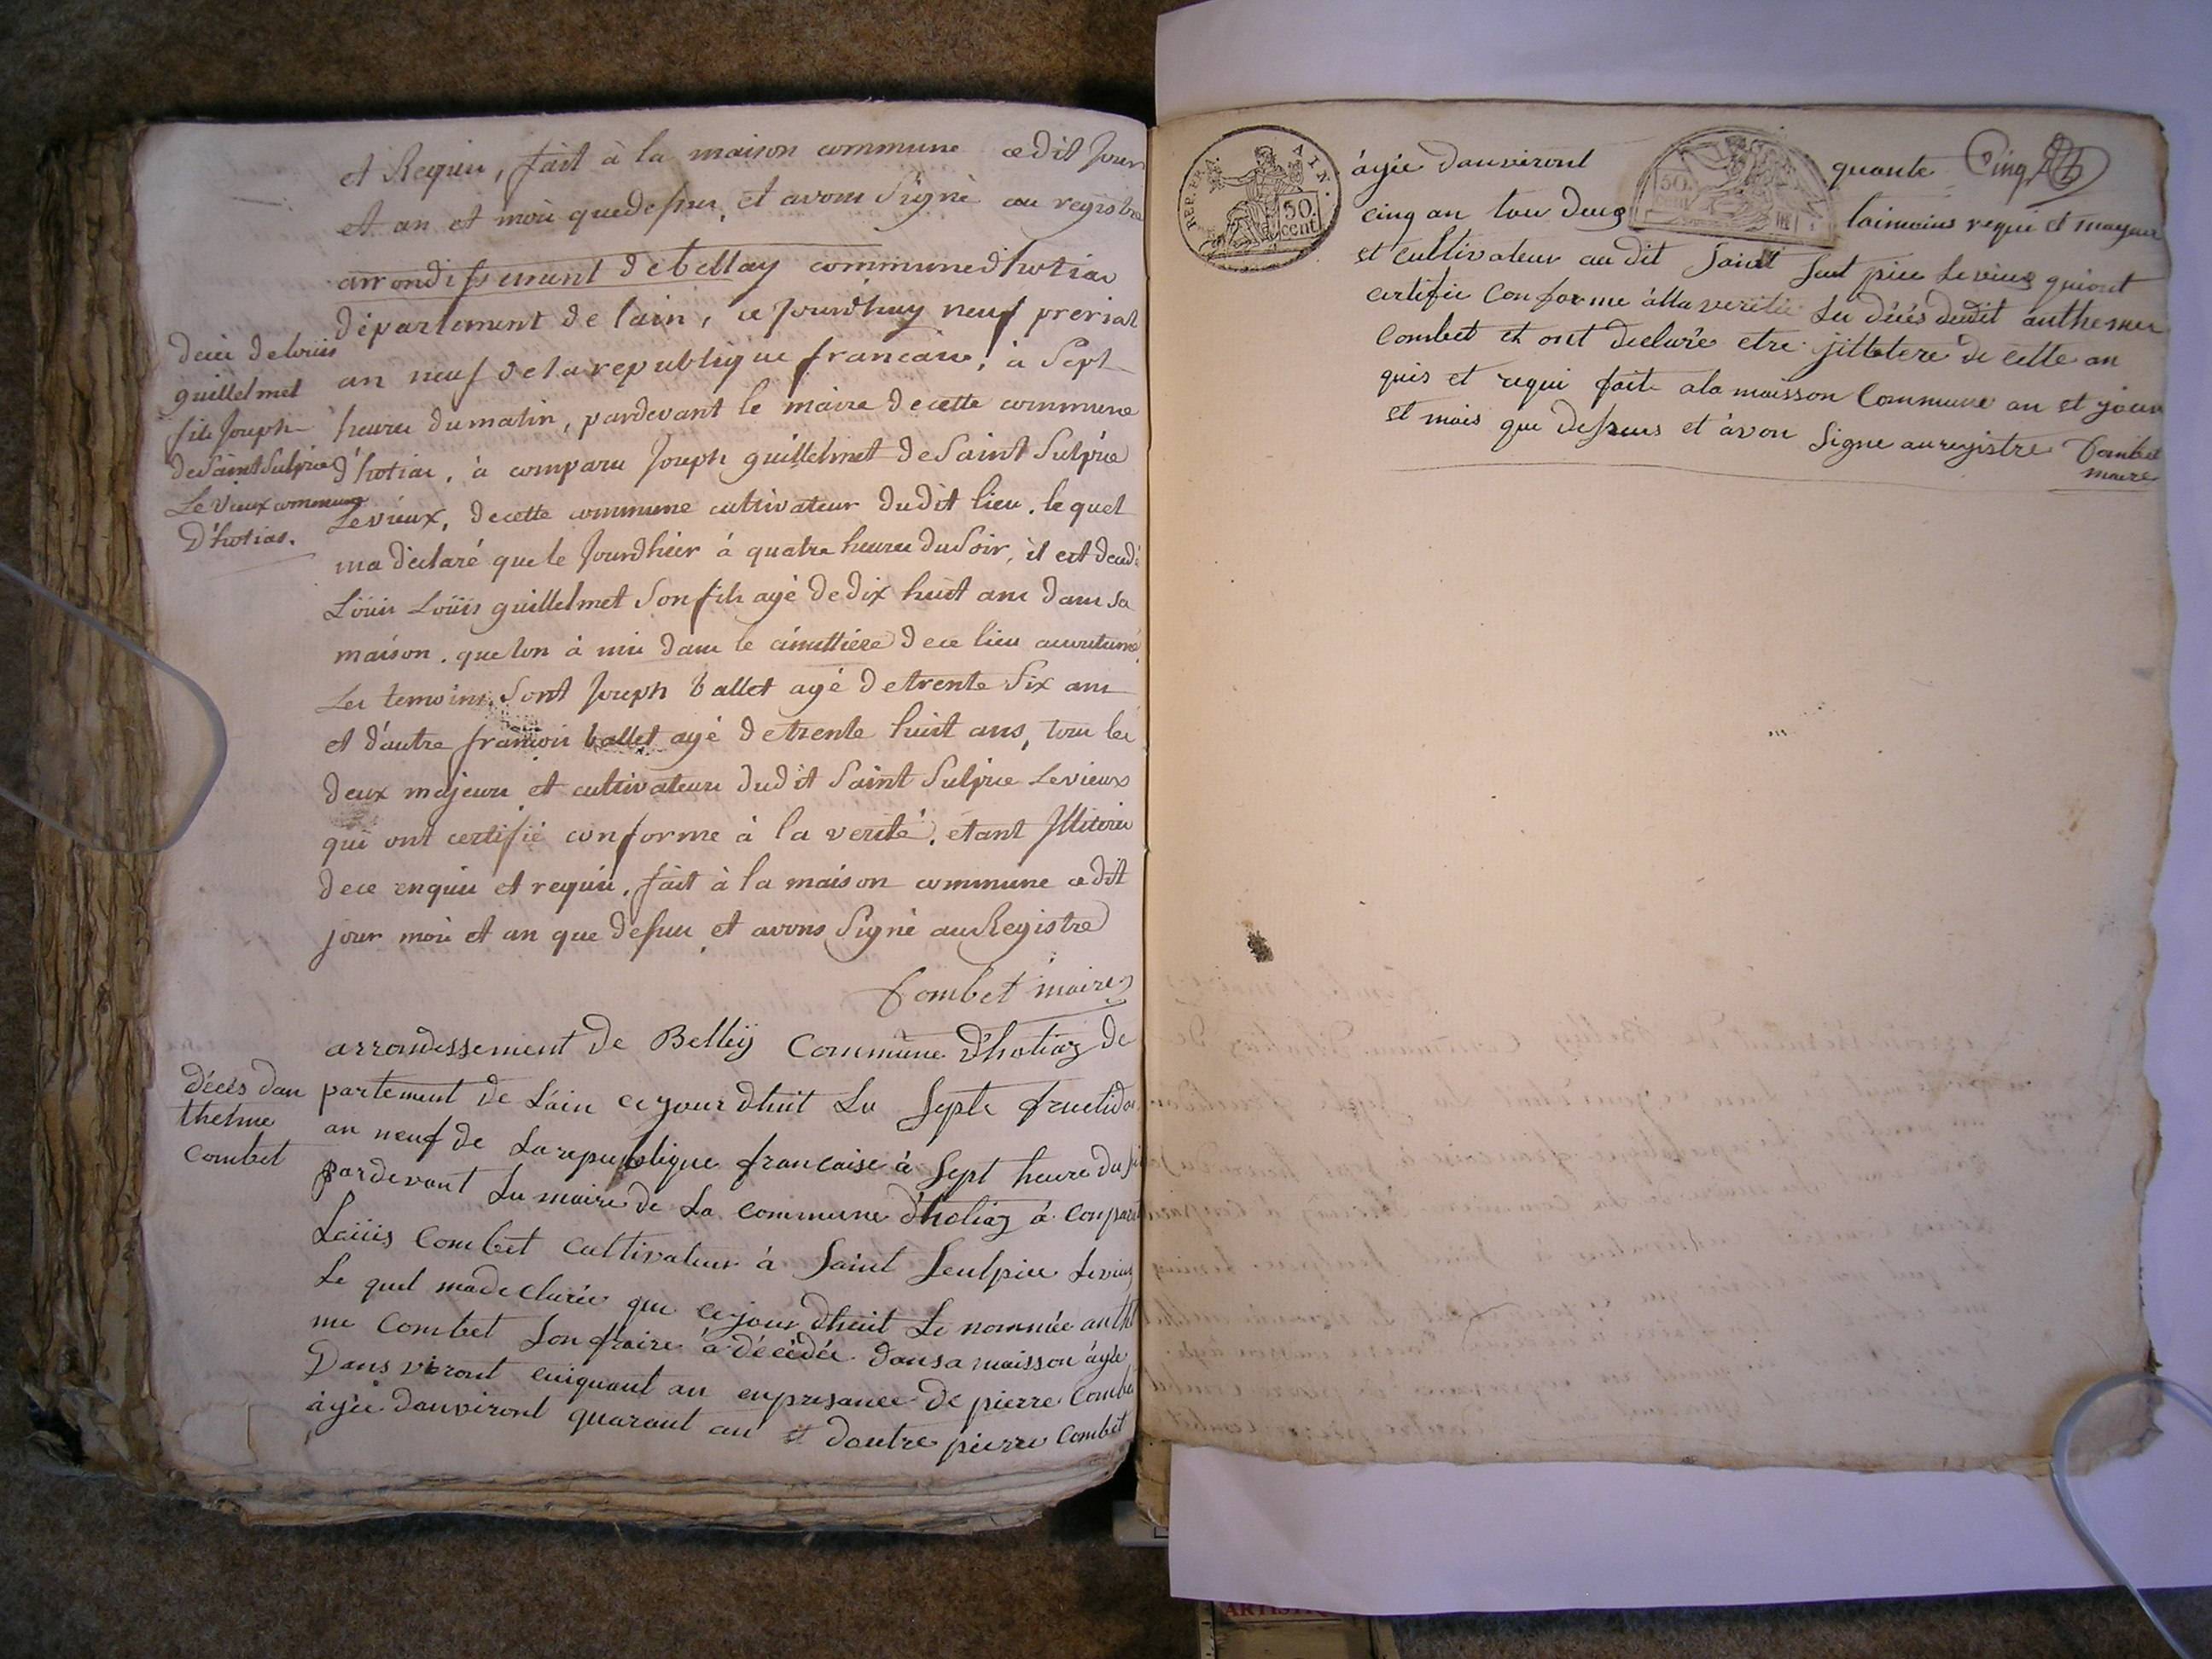 et Requis, fait à la maison commune cedit Jour
et an et mois quedessus, et avons Signé au registre
arrondissement debellay commune dhotias
département de lain, ce Jourdhuy neuf prerial
an neuf de la republique francaise, à Sept
heures du matin, pardevant le maire decette commune
d'hotias, à comparu Joseph guillelmet deSaint Sulpice
Levieux, decette commune cultivateur dudit lieu. lequel
ma déclaré quele Jourdhier à quatre heures duSoir, il est decedé
Loüis Loüis guillelmet Sonfils agé dedix huit ans dans sa
maison. quelon à mis dans le cimittiere dece lieu accoutumé
Les temoins Sont Joseph ballet agé detrente Six ans
et d'autre francois ballet agé detrente huit ans, tous les
deux majeurs et cultivateurs dudit Saint Sulpice Levieux
qui ont certifié conforme à la verité. etant Jllitérés
dece enquis et requis, fait à la maison commune cedit
jour mois et an que dessus et avons Signé auRegistre
Combet maire
decés delouis
guillelmet
fils Joseph
deSaint Sulpice
Le Vieux commune
D'hotias.
arrondissement de Belleÿ Commune d'hotiaz de
partement de L'ain ce jour dhuit Le Septe fructidor
an neuf de La republique francaise à Sept heure du
pardevant Le maire de La commune d'hotiaz à Conparu
Loüis Combet Cultivateur à Saint Seulpice Levieux
Le quel ma declarée que ce jour dhuit Le nommée anthe
me Combet Son fraire à décédée dansa maisson âgée
Dans viront cinquant an enpresance de pierre Combet
àgée danviront quarant an et dautre pierre Combet
décés dan
thelme
Combet
àgée danviront quante Cinq
cinq an tou deux taimoins requi et mageur
et cultivateur au dit Saint Seul pice Levieux quiont
certifie Conforme àlla verité Le décés dudit anthelme
Combet et ont declaré etre jilletere de cette an
quis et requi fait a la maisson Commune an et jour
et mois que dessus et avon Signe au registre Combet
maire
REP. FRA.
50
cent
50
cent
ARTIST